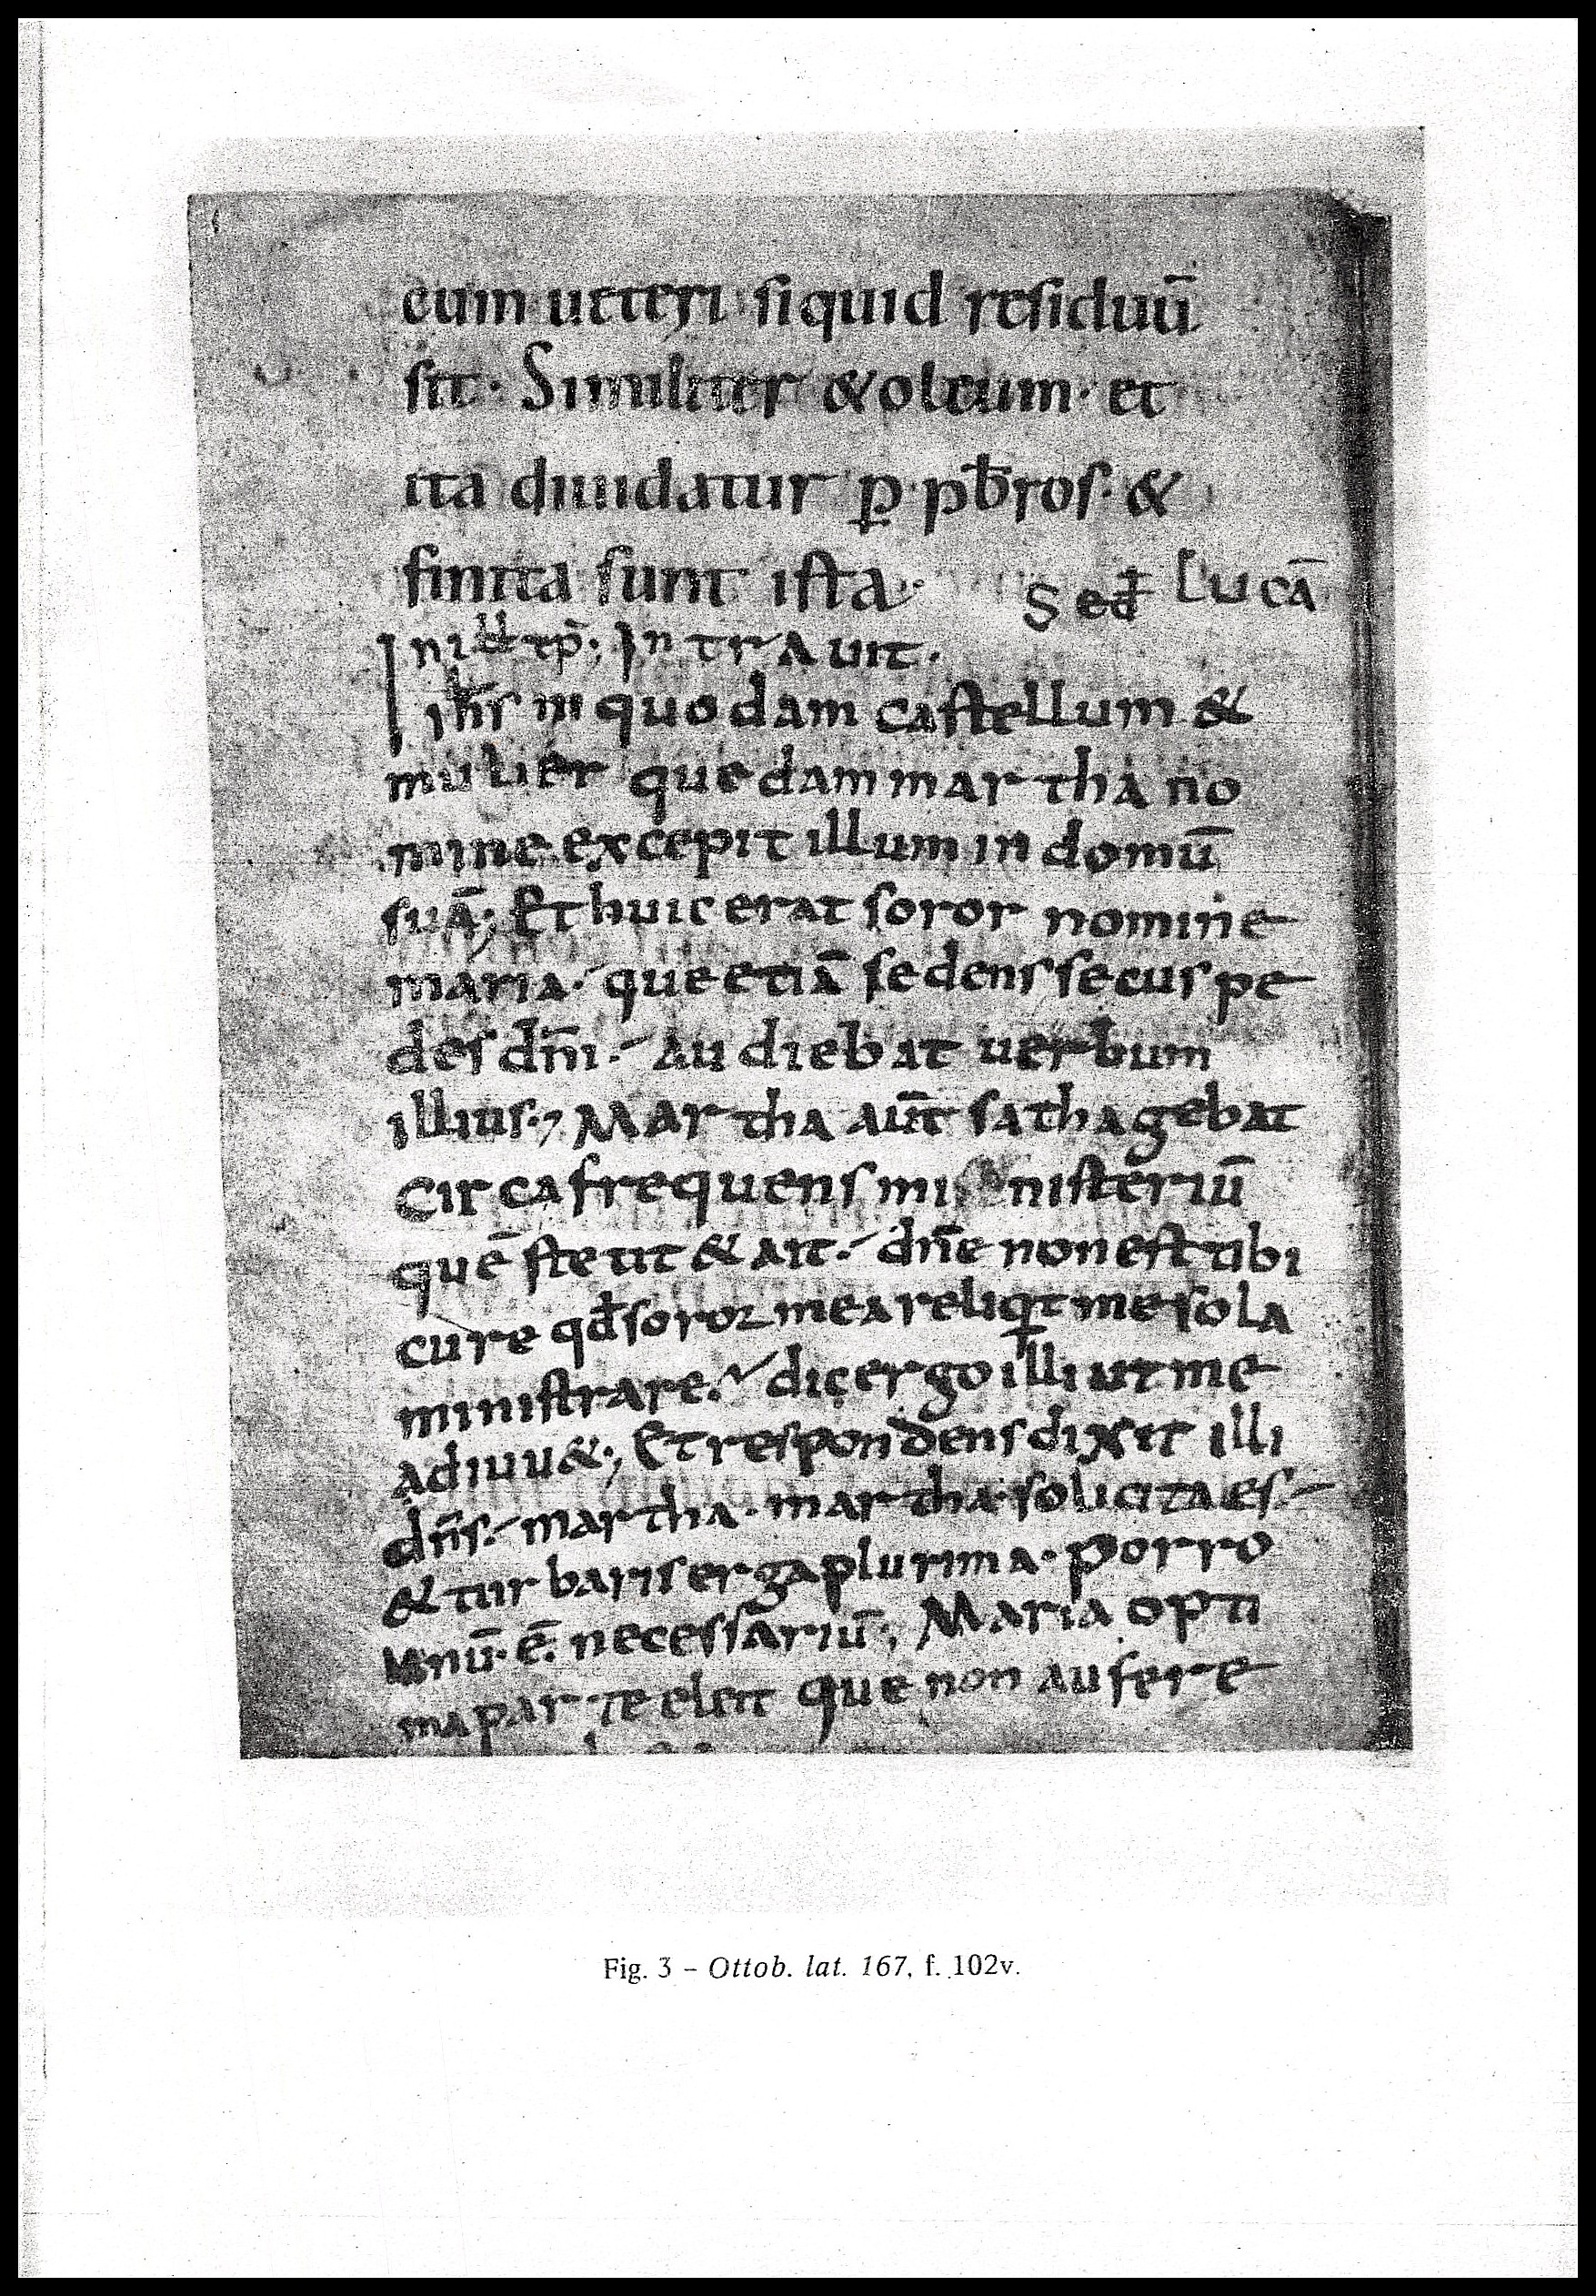 cum ueteri si quid residuū
sit· Similiter & oleum· et
ita diuidatur ꝑ p̄bros· &
finita sunt ista· Sed̄ Lucā
In iłł tp̄; Intrauit·
ih̄s in quodam castellum &
mulier quedam martha no
mine excepit illum in domū
suā; Et huic erat soror nomine
maria· que etiā sedens secus pe
des dn̄i· audiebat uerbum
illius; Martha aūt sathagebat
Circa frequens mi nisteriū
quē stetit & ait· dn̄e non est tibi
cure qđ soror mea reliqt me sola
ministrare· dic ergo illi ut me
adiuu&; Et respondens dixit illi
dn̄s· martha· martha· solicita es·
& turbaris erga plurima· Porro
unū· ē· necessāriū; Maria opti
ma parte elett que non aufere